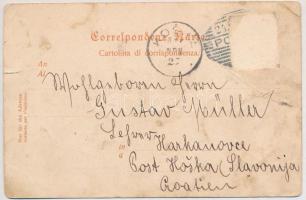 Correspondenz-Karte
Cartolina di corrispondenza.
An
A
Wohlgeborn Herrn
Gustav Müller
Lehrer
in
a
Harkanovce
Post Koška (Slavonija
Croatien